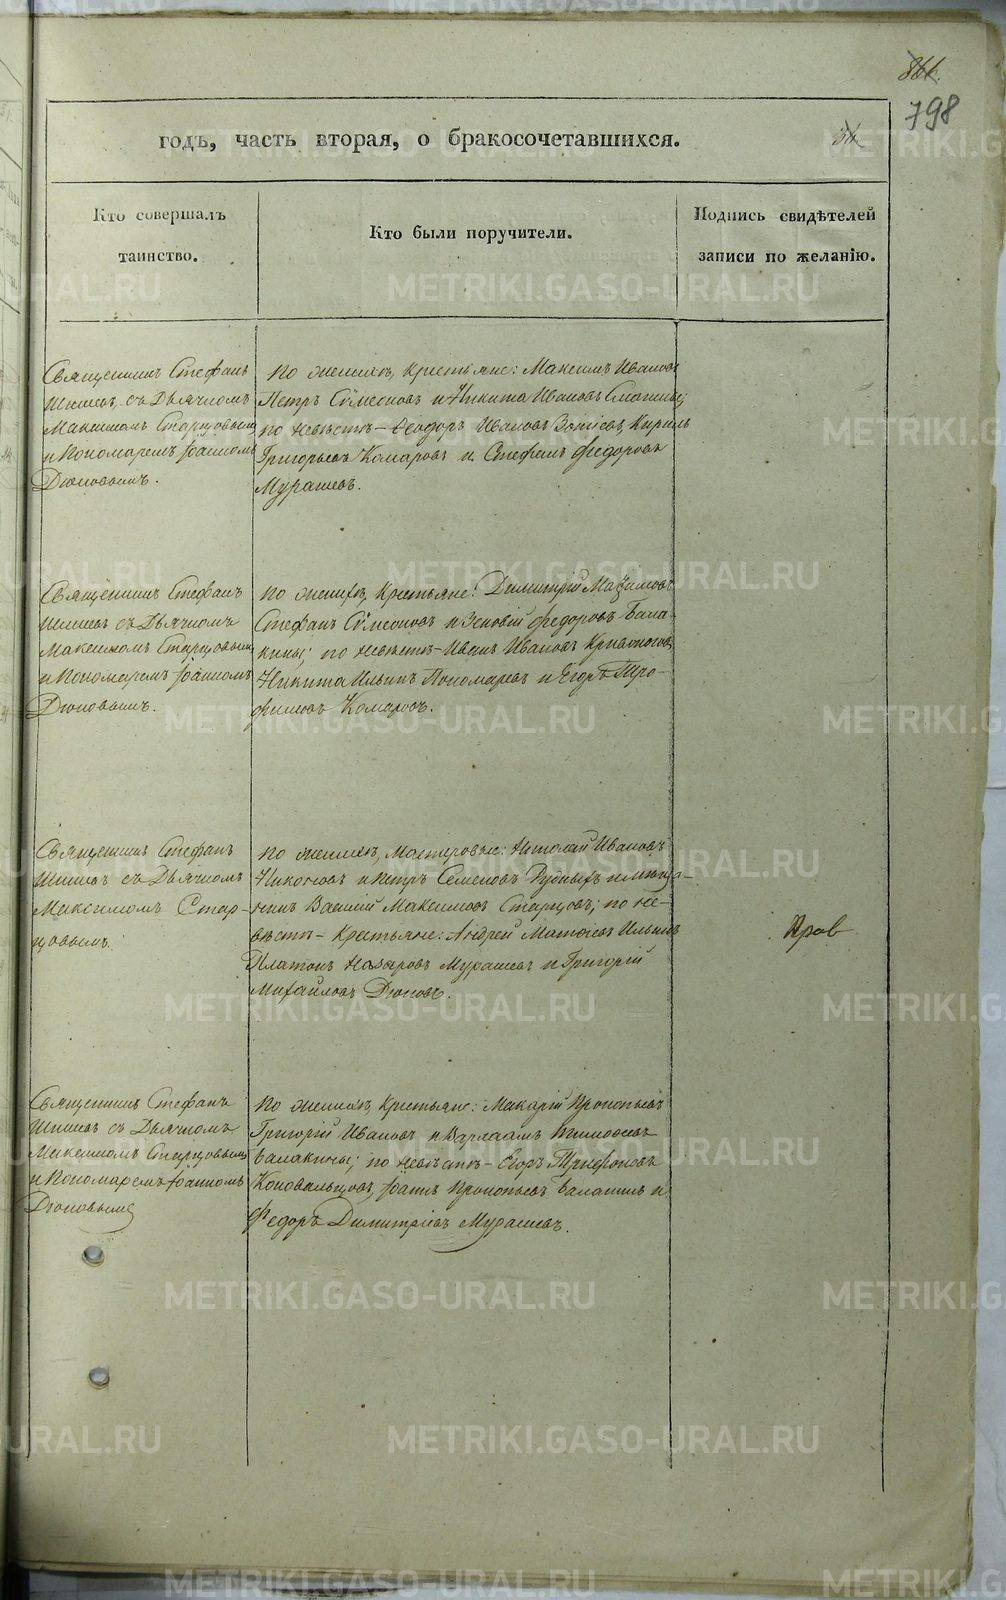 866.
798
годъ, часть вторая, о бракосочетавшихся.
Кто совершалъ
таинство.
Кто были поручители.
Подпись свидѣтелей
записи по желанію.
Священникъ Стефанъ
съ Дьячкомъ
Максимомъ Старцовымъ
и Пономаремъ Іоанномъ
Дюповымъ.
По женихѣ, крестьяне: Максимъ Ивановъ
Петръ Сѵмеоновъ и Никита Ивановъ
по невѣстѣ – Ѳеодоръ Ивановъ Кирилъ
Григорьевъ Комаровъ и Стефанъ Федоровъ
Мурашевъ.
Священникъ Стефанъ
съ Дьячкомъ
Максимомъ Старцовымъ
и Пономаремъ Іоанномъ
Дюповымъ.
По женихѣ, Крестьяне: Димитрій Максимовъ
Стефанъ Сѵмеоновъ и Зеновій Федоровъ Бала-
кины; по невѣстѣ – Иванъ Ивановъ Кривоносовъ,
Никита Ильинъ Пономаревъ и Егоръ Тро-
фимовъ Комаровъ.
Священникъ Стефанъ
съ Дьячкомъ
Максимомъ Стар-
цовымъ.
По женихѣ, Мастеровые: Николай Ивановъ
Никоновъ и Петръ Семеновъ Рудныхъ и мѣща-
нинъ Василій Максимовъ Старцовъ; по не-
вѣстѣ – Крестьяне: Андрей Матвѣевъ Ильинъ
Платонъ Назаровъ Мурашевъ и Григорій
Михайловъ Дюповъ.
Священникъ Стефанъ
съ Дьячкомъ
Максимомъ Старцовымъ
и Пономаремъ Іоанномъ
Дюповымъ
По женихѣ, Крестьяне: Макарій Прокопьевъ
Григорій Ивановъ и Варлаамъ Тимофеевъ
Балакины; по невѣстѣ – Егоръ Трифоновъ
Коновальцовъ, Іоаннъ Прокопьевъ Балакинъ и
Федоръ Димитріевъ Мурашевъ.
METRIKI.GASO-URAL.RU